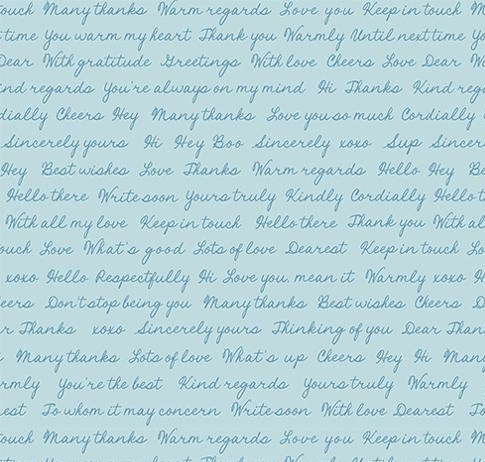 ouch Many thanks Warm regards Love you Keep in touch M
time You warm my heart Thank you Warmly Until next time Yo
Dear With gratitude Greetings With love Cheers Love Dear W
nd regards You're always on my mind Hi Thanks Kind rega
dially Cheers Hey Many thanks Love you so much Cordially
Sincerely yours Hi Hey Boo Sincerely xoxo Sup Sincer
Hey Best wishes Love Thanks Warm regards Hello Hey Be
Hello there Write soon Yours truly Kindly Cordially Hello t
With all my love Keep in touch Hello there Thank you With al
ouch Love What's good Lots of love Dearest Keep in touch Lo
xoxo Hello Respectfully Hi Love you, mean it Warmly xoxo H
eers Don't stop being you Many thanks Best wishes Cheers D
r Thanks xoxo Sincerely yours Thinking of you Dear Than
Many thanks Lots of love What's up Cheers Hey Hi Many
rmly You're the best Kind regards Yours truly Warmly
est To whom it may concern Write soon With love Dearest To
ouch Many thanks Warm regards Love you Keep in touch M